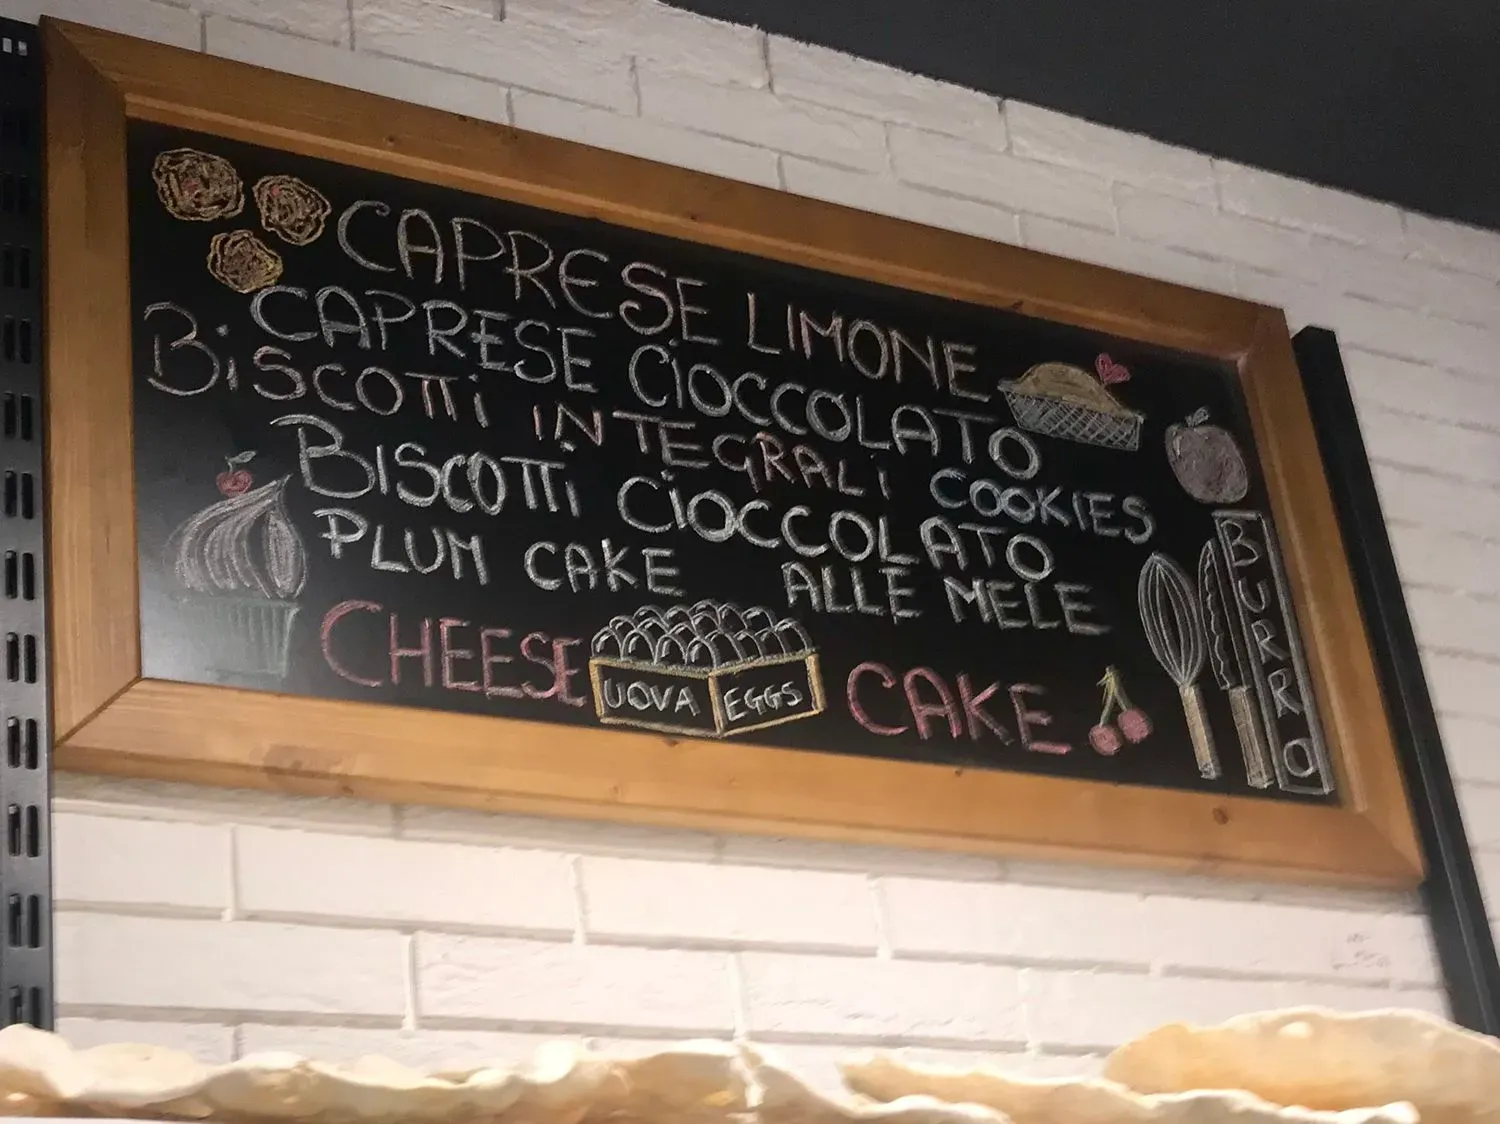 CAPRESE LIMONE
CAPRESE CIOCCOLATO
BiSCOTTi INTEGRALi COOKIES
BISCOTTi CiOCCOLATO
PLUM CAKE ALLE MELE
CHEESE CAKE
UOVA EGGS
BURRO